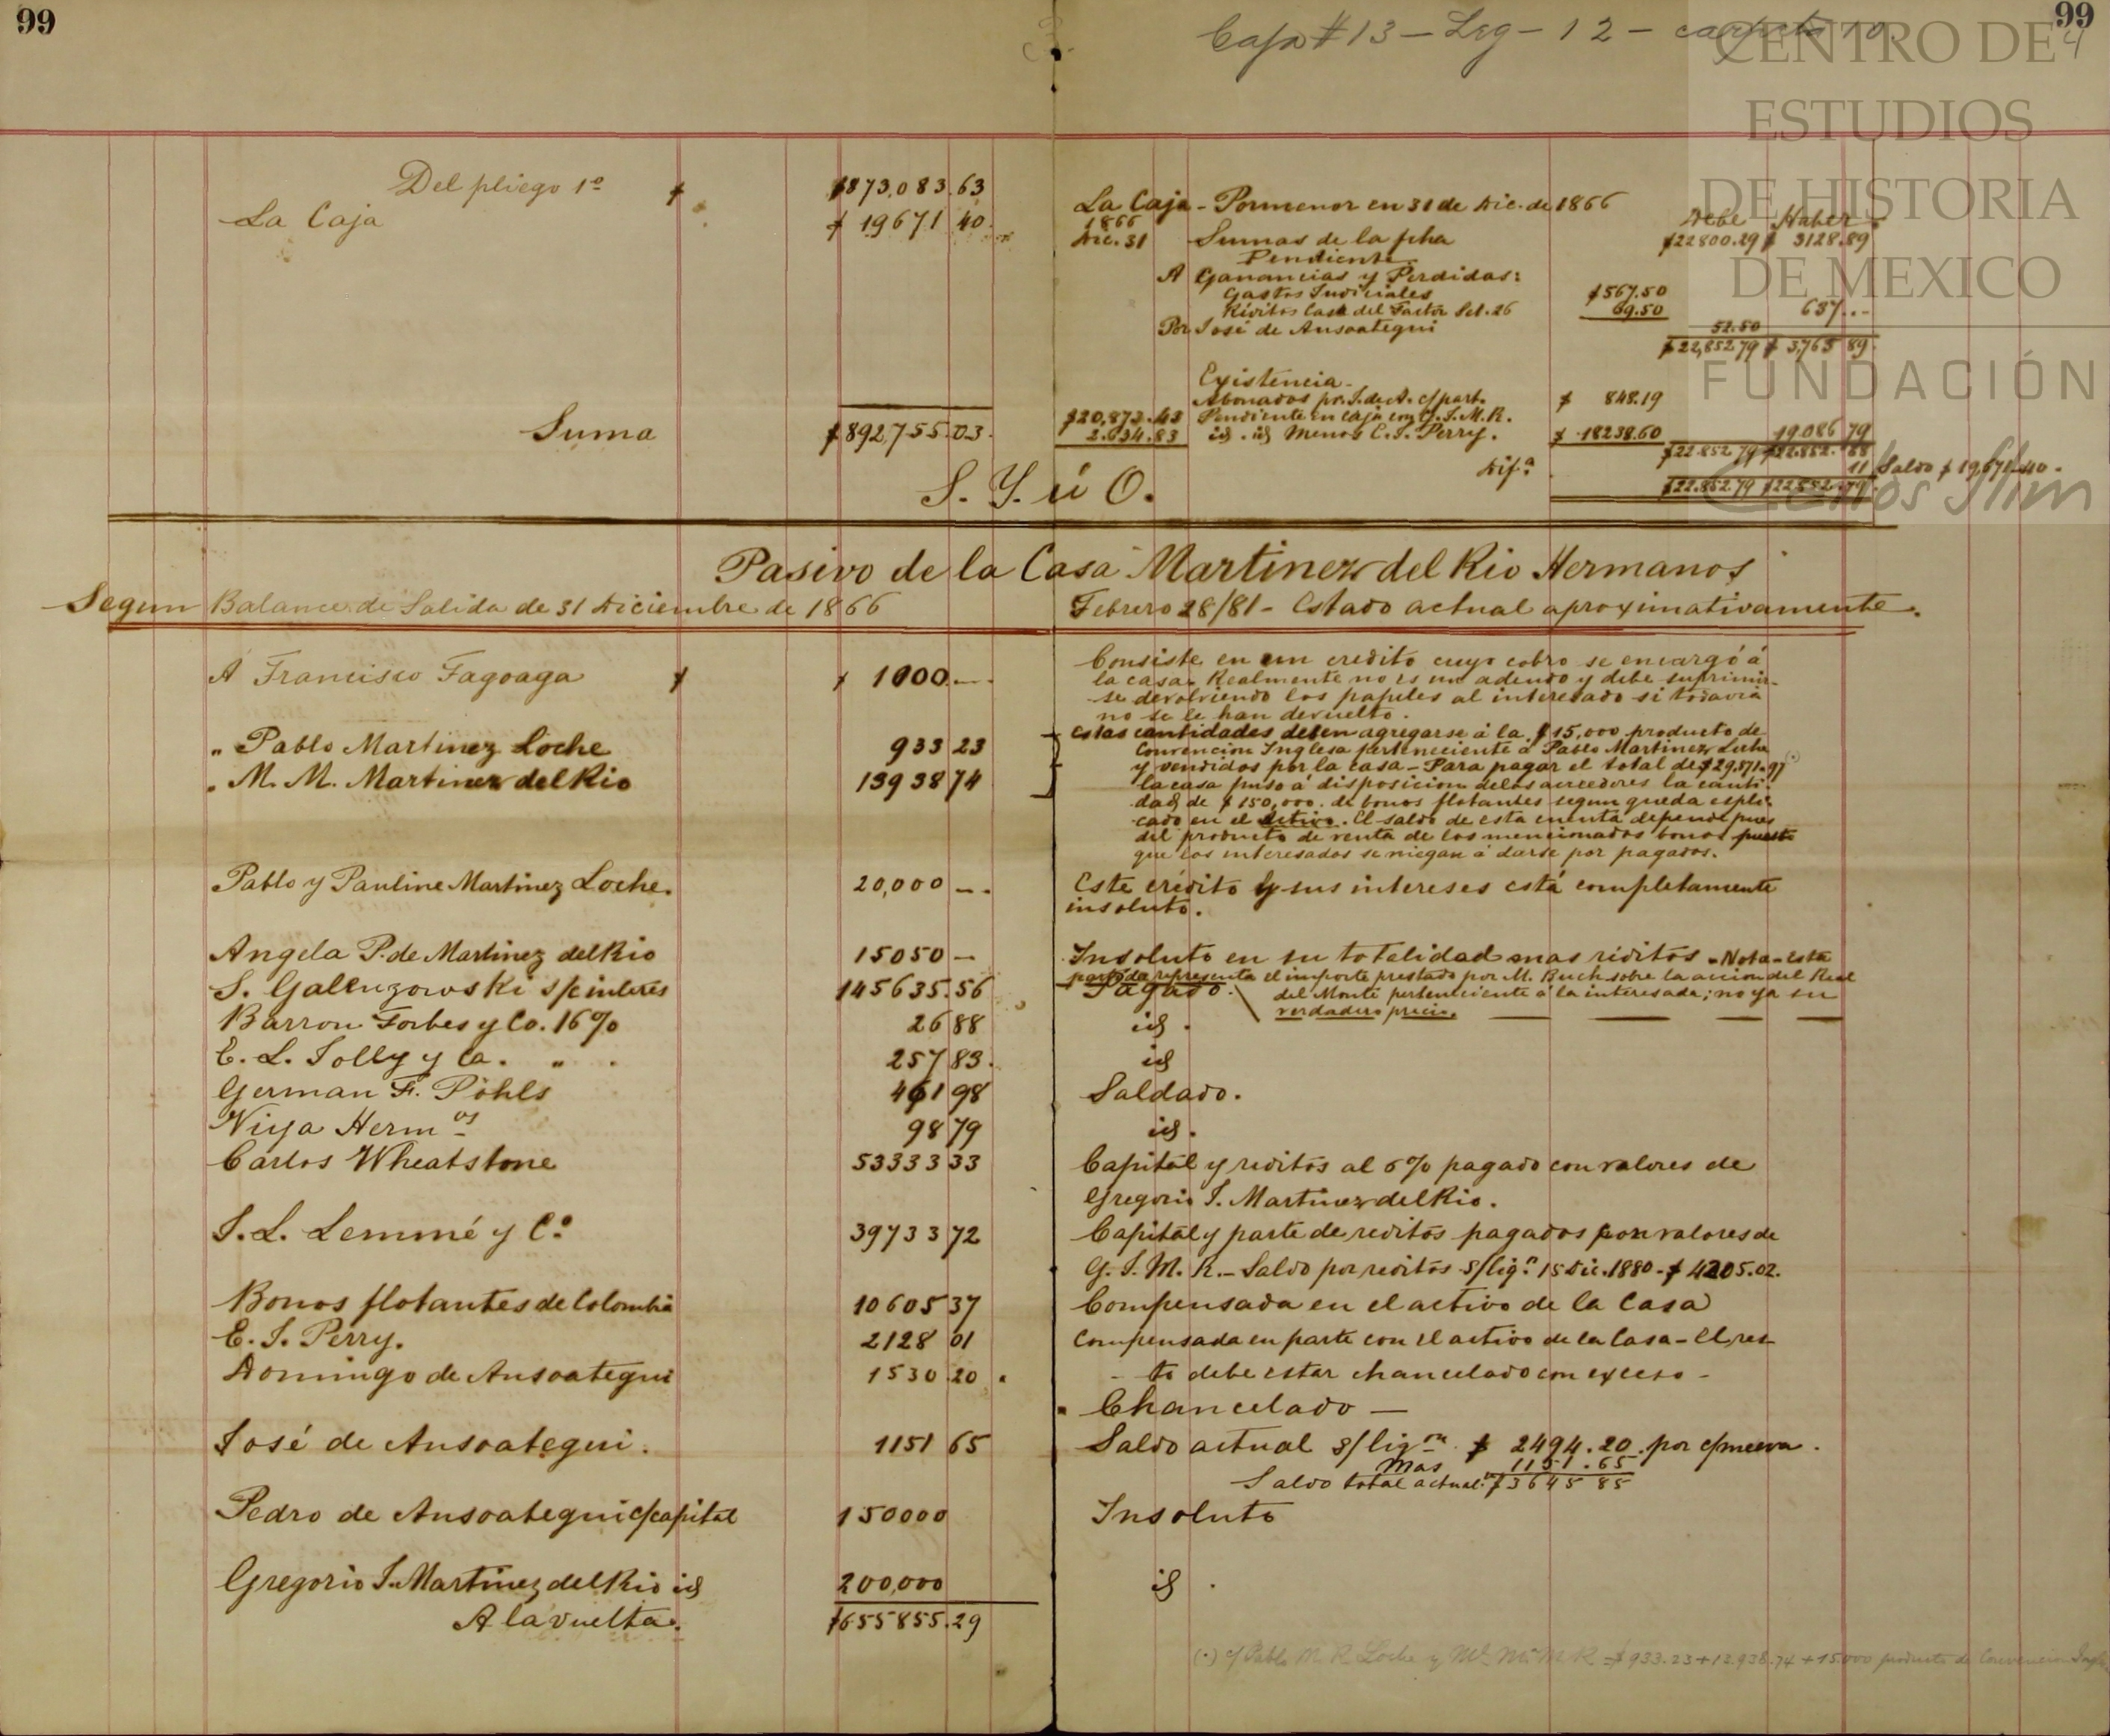 99
99
Caja # 13 - Leg - 12 - carpeta 10.
4
CENTRO DE
ESTUDIOS
DE HISTORIA
DE MEXICO
FUNDACIÓN
Carlos Slim
Del pliego 1º $ $873,083.63
La Caja $ 19671 40
Suma $892,755.03.
La Caja - Pormenor en 31 de Dic. de 1866
1866 Debe Haber
Dic. 31 Sumas de la fcha $22800.29 $ 3128.89
Pendiente
A Ganancias y Perdidas:
Gastos Judiciales $567.50
Réditos Casa del Factor Set. 26 69.50 637..-
Por José de Ansoategui 52.50
$22,852 79 $ 3,765 89
Existencia-
Abonados pr. J. de A. c/part. $ 848.19
$20,873.43 Pendiente en caja con G. J. M. R.
2.634.83 id. id Menos E. J. Perry. $ 18238.60 19.086 79
$22.852 79 $22.852.68
Dif.ª 11 Saldo $ 19,671.40-
$22.852.79 $22.852.79
S. Y. ú O.
Pasivo de la Casa Martinez del Rio Hermanos
Segun Balance de Salida de 31 Diciembre de 1866
Febrero 28/81 - Estado actual aproximativamente.
A Francisco Fagoaga $ $ 1000.--
Consiste en un credito cuyo cobro se encargó á
la casa. Realmente no es un adeudo y debe suprimir-
se devolviendo los papeles al interesado si todavia
no se le han devuelto.
" Pablo Martinez Loche 933 23
" M. M. Martinez del Rio 13938 74
Estas cantidades deben agregarse á la $15,000 producto de
Convencion Inglesa perteneciente á Pablo Martinez Loche
y vendidos por la casa - Para pagar el total de $29.871.97 (·)
la casa puso á disposicion de los acreedores la canti-
dad de $150,000. de bonos flotantes segun queda espli-
cado en el activo. El saldo de esta cuenta depende pues
del producto de renta de los mencionados bonos puesto
que los interesados se niegan á darse por pagados.
Pablo y Pauline Martinez Loche. 20,000 --
Este crédito y sus intereses está completamente
insoluto.
Angela P. de Martinez del Rio 15050 -
Insoluto en su totalidad mas réditos - Nota - Esta
partida representa el importe prestado por M. Buch sobre la accion del Real
del Monte perteneciente á la interesada; no ya su
verdadero precio.
S. Galenzowski s/c interés 145635.56
Pagado.
Barron Forbes y Co. 16% 26 88
id.
E. L. Jolly y Ca. " . 257 83.
id
German F. Pöhls 461 98
Saldado.
Viya Herm os 98 79
id.
Carlos Wheatstone 53333 33
Capital y reditos al 6% pagado con valores de
Gregorio J. Martinez del Rio.
J. L. Lemmé y Cº 39733 72
Capital y parte de reditos pagados con valores de
G. J. M. R. - Saldo por reditos s/lig.n 15 Dic. 1880 - $ 4205.02.
Bonos flotantes de Colombia 10605 37
Compensada en el activo de la Casa
E. J. Perry. 2128 01
Compensada en parte con el activo de la Casa - El res-
Domingo de Ansoategui 1530.20
- to debe estar chancelado con exceso -
Chancelado -
José de Ansoategui. 1151 65
Saldo actual s/lig.on $ 2494.20. por c/nueva.
Mas 1151.65
Saldo total actual: $3645 85
Pedro de Ansoategui c/capital 150000
Insoluto
Gregorio J. Martinez del Rio id 200,000
id.
A la vuelta. $655855.29
(·) c/ Pablo M R Loche y M. M. M R = $933.23+13.938.74+15.000 producto de Convencion